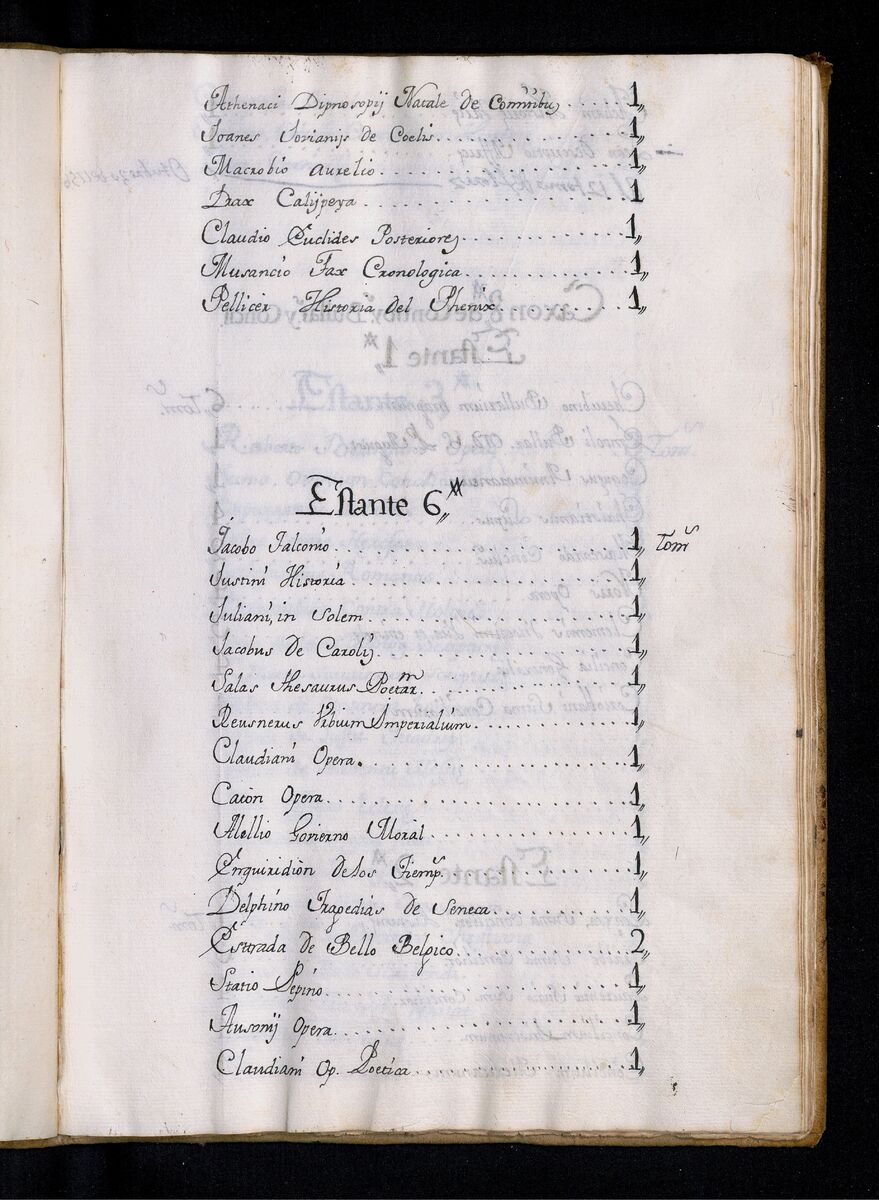 Athenaci Dipnosopij Natale de Comūibus 1„
Joanes Jovianijs de Coelis 1„
Macrobio Aurelio 1„
Drax Calijpeya 1
Claudio Euclides Posteriores 1„
Musancio Fax Cronologica 1„
Pellicer Historia del Phenix 1„
Estante 6„
Jacobo Falconio 1„ Tom^s
Justini Historia 1„
Juliani, in Solem 1„
Jacobus de Carolis 1„
Salas Thesaurus Poetar^m 1
Reusnerus Vrbium Imperialium 1„
Claudiani Opera 1„
Caton Opera 1„
Govierno Moral 1„
Enquiridion de los Tiemp^s 1„
Delphino Tragedias de Seneca 1„
Estrada de Bello Belgico 2„
Statio Pepino 1„
Ausonij Opera 1„
Claudiani Op. Poetica 1„